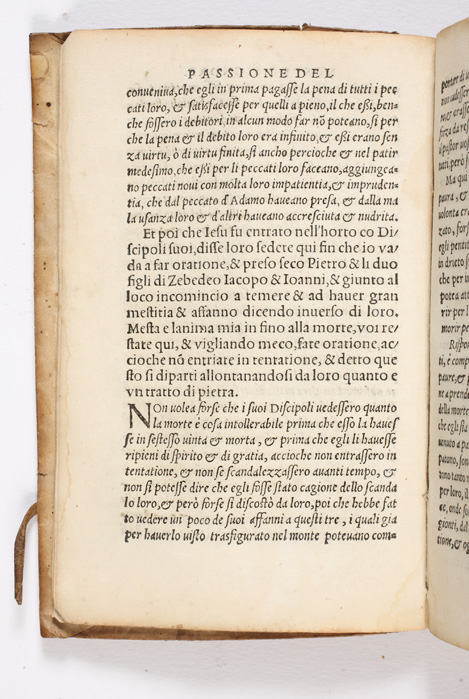 PASSIONE DEL
conveniua, che egli in prima pagasse la pena di tutti i pec
cati loro, & satisfacesse per quelli a pieno, il che eßi, ben=
che fossero i debitori, in alcun modo far nõ poteano, si per
che la pena & il debito loro era infinito, & eßi erano sen
za uirtu, ò di uirtu finita, si ancho percioche & nel patir
medesimo, che eßi per li peccati loro faceano, aggiungea=
no peccati noui con molta loro impatientia, & impruden=
tia, che dal peccato d'Adamo haueano presa, & dalla ma
la usanza loro & d'altri haueano accresciuta & nudrita.
Et poi che Iesu fu entrato nell'horto co Di/
scipoli suoi, disse loro sedete qui fin che io va/
da a far oratione, & preso seco Pietro & li duo
figli di Zebedeo Iacopo & Ioanni, & giunto al
loco incomincio a temere & ad hauer gran
mestitia & affanno dicendo inuerso di loro.
Mesta e lanima mia in fino alla morte, voi re/
state qui, & vigliando meco, fate oratione, ac/
cioche nõ entriate in tentatione, & detto que
sto si diparti allontanandosi da loro quanto e
vn tratto di pietra.
NOn uolea forse che i suoi Discipoli uedessero quanto
la morte è cosa intollerabile prima che esso la haues
se in sestesso uinta & morta, & prima che egli li hauesse
ripieni di spirito & di gratia, accioche non entrassero in
tentatione, & non se scandalezzassero auanti tempo, &
non si potesse dire che egli fosse stato cagione dello scanda
lo loro, & però forse si discostò da loro, poi che hebbe fat
to uedere un poco de suoi affanni a questi tre, i quali gia
per hauerlo uisto trasfigurato nel monte poteuano com=